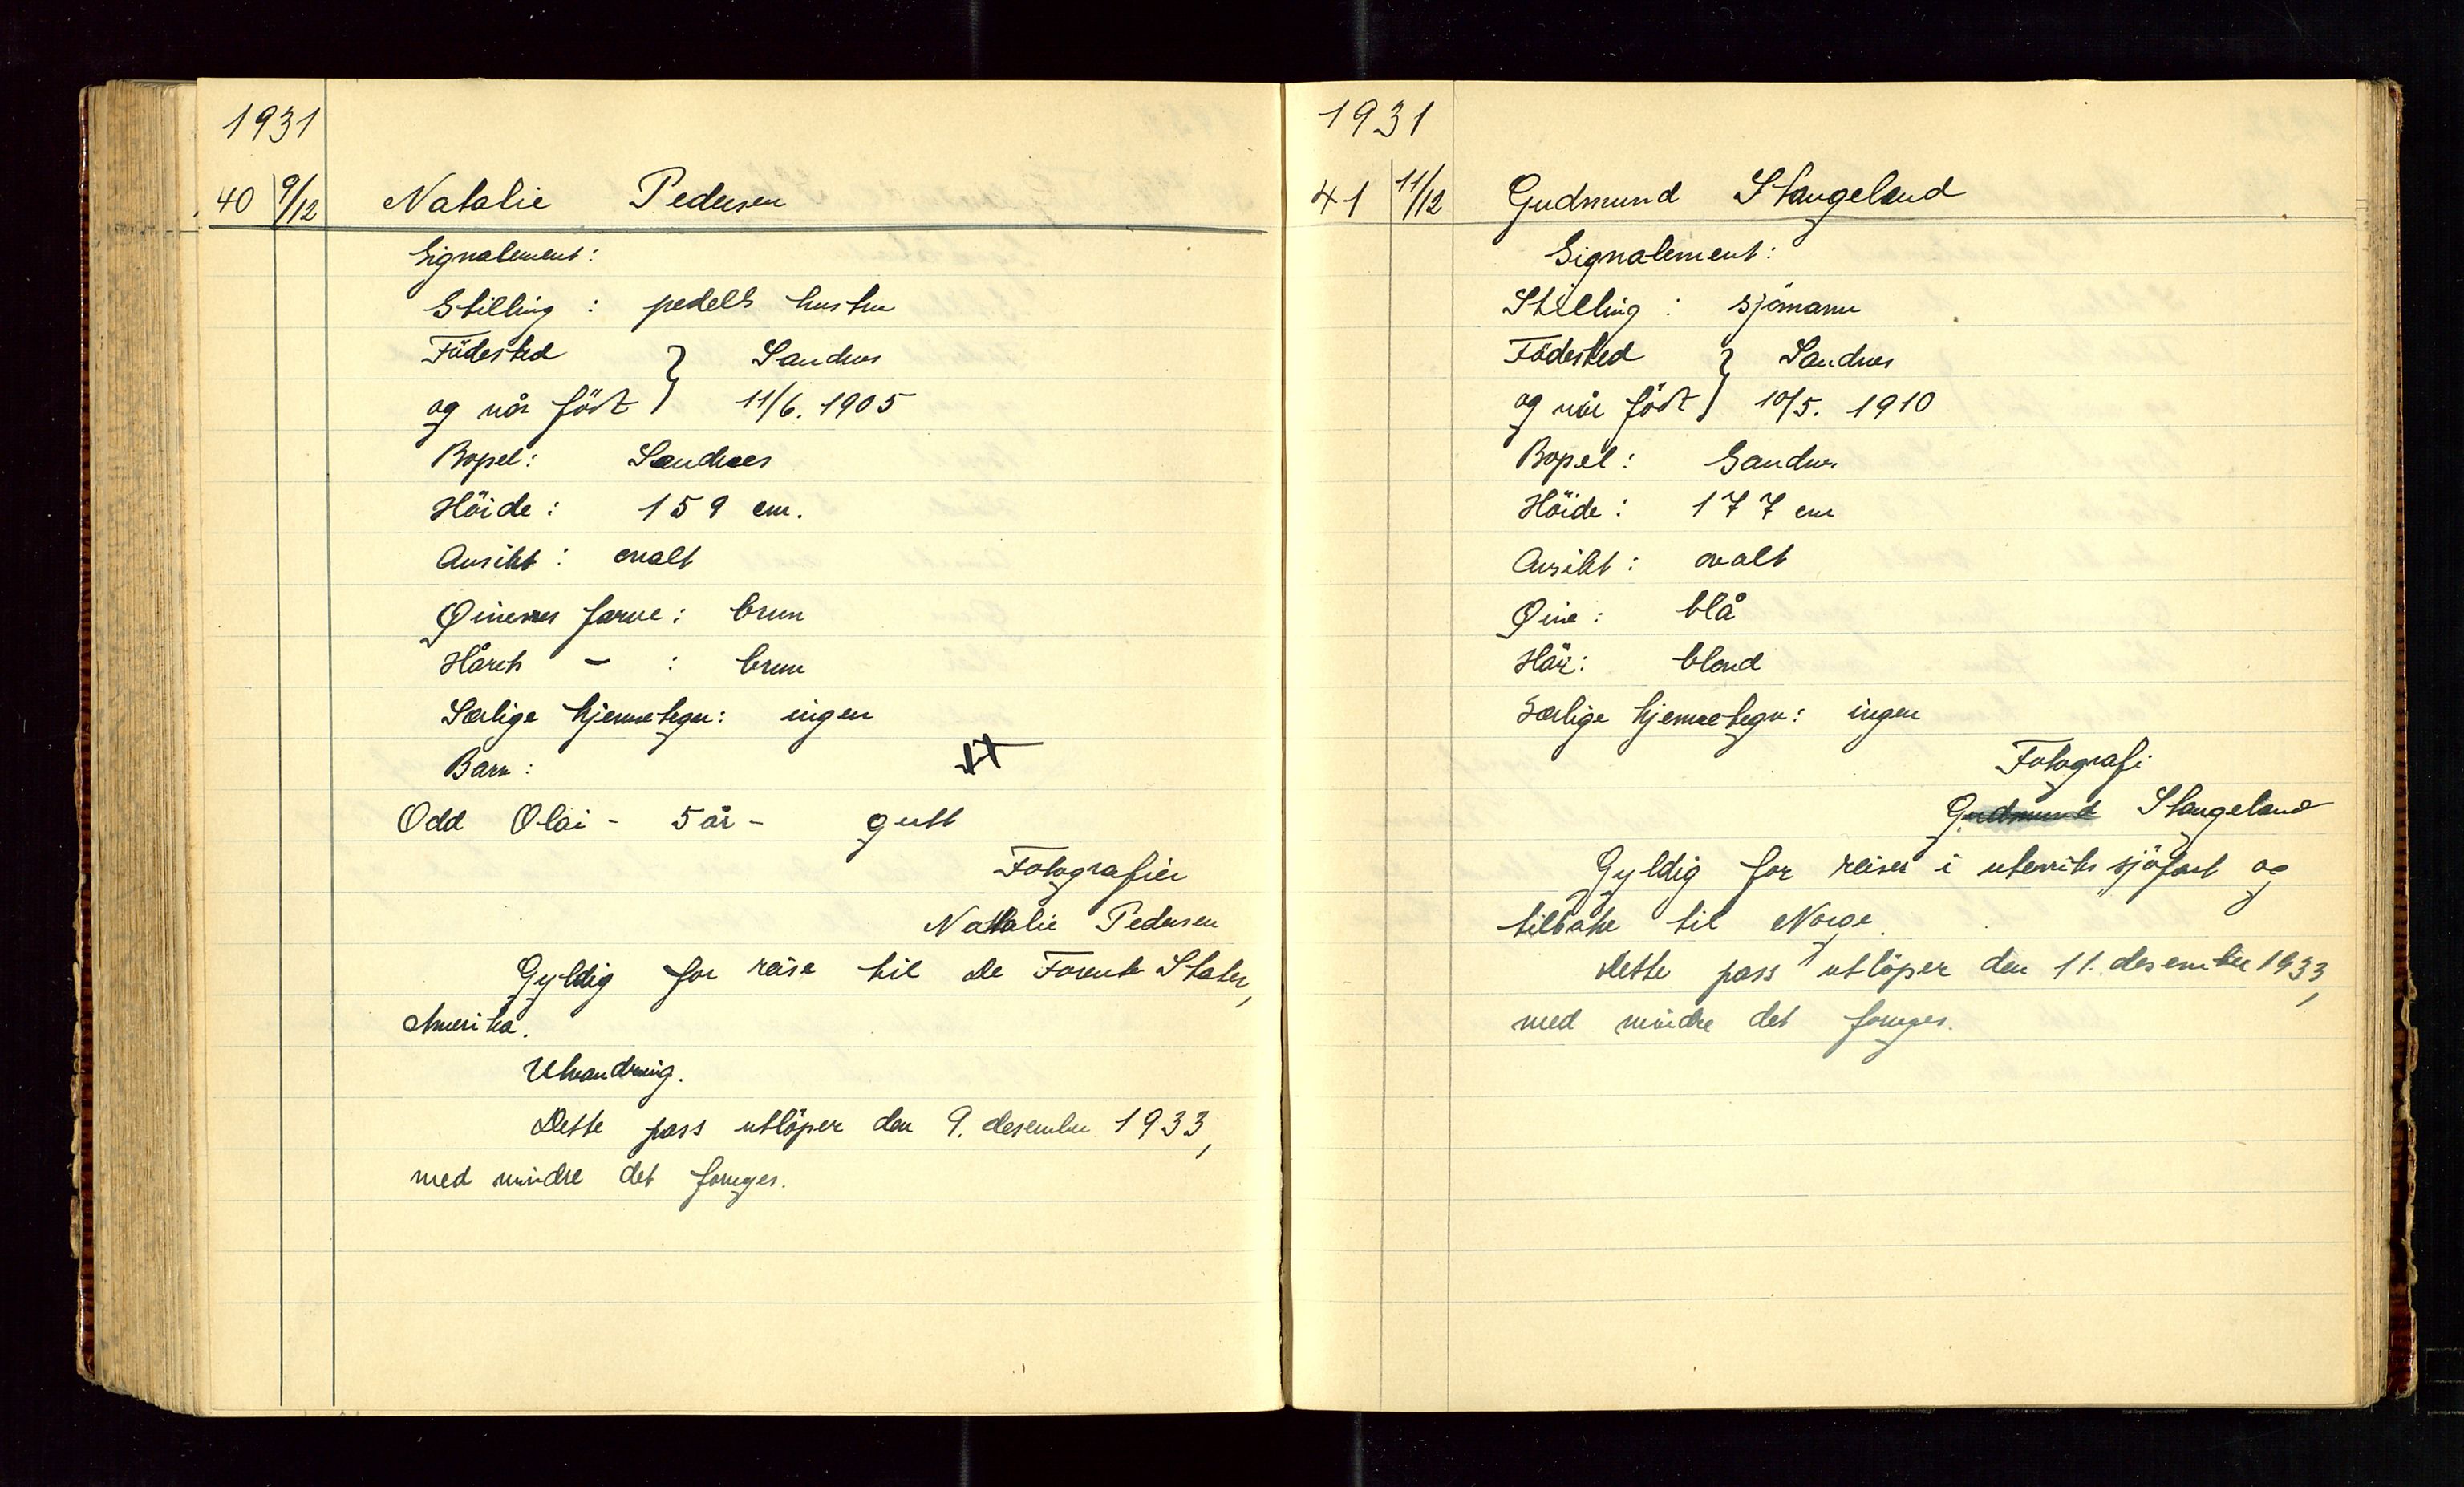 1931
40 9/12 Natalie Pedersen
Signalement:
Stilling : pedells hustru
Födested } Sandnes
og når födt } 11/6. 1905
Bopel: Sandnes
Höide : 159 cm.
Ansikt : ovalt
Øinenes farve : brun
Hårets - : brun
Særlige kjennetegn: ingen
Barn :
Odd Olai - 5 år - gutt
Fotografier
Natalie Pedersen
Gyldig for reise til De Forente Stater,
Amerika.
Utvandring.
Dette pass utlöper den 9. desember 1933,
med mindre det fornyes.
1931
41 11/12 Gudmund Stangeland
Signalement:
Stilling : sjömann
Födested } Sandnes
og når födt } 10/5. 1910
Bopel : Sandnes
Höide : 177 cm
Ansikt : ovalt
Øine : blå
Hår: blond
Særlige kjennetegn: ingen
Fotografi
Gudmund Stangeland
Gyldig for reiser i utenriks sjöfart og
tilbake til Norge.
Dette pass utlöper den 11. desember 1933,
med mindre det fornyes.